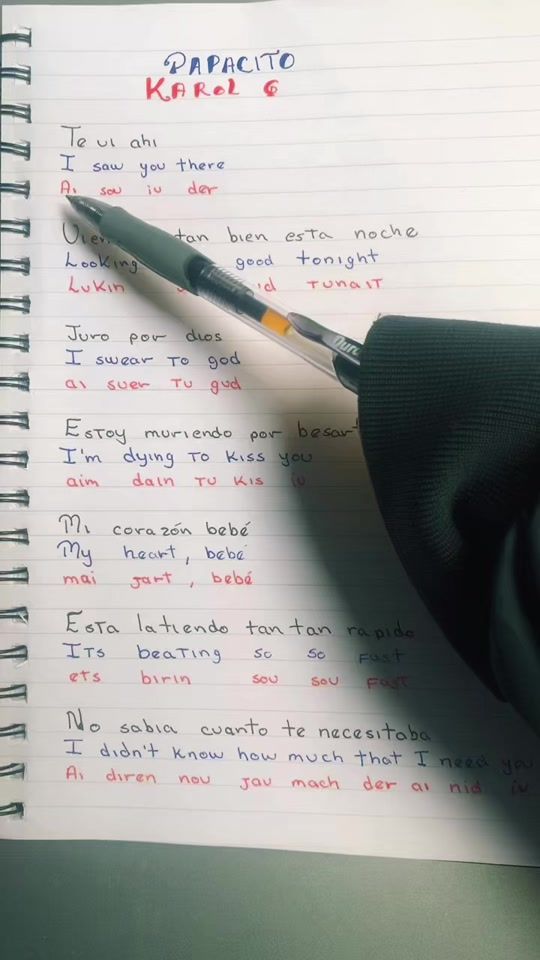 PAPACITO
KAROL G
Te vi ahi
I saw you there
Ai sou iu der
tan bien esta noche
Looking good tonight
Lukin TUNAIT
Juro por dios
I swear To god
ai suer Tu gud
Estoy muriendo por besar
I'm dying To Kiss you
aim dain TU KIS iu
Mi corazón bebé
My heart, bebé
mai jart, bebé
Esta latiendo tan tan rapido
ITs beaTing so so FasT
ets birin sou sou FasT
No sabia cuanto te necesitaba
I didn't know how much that I need you
Ai diren nou jau mach der ai nid iu